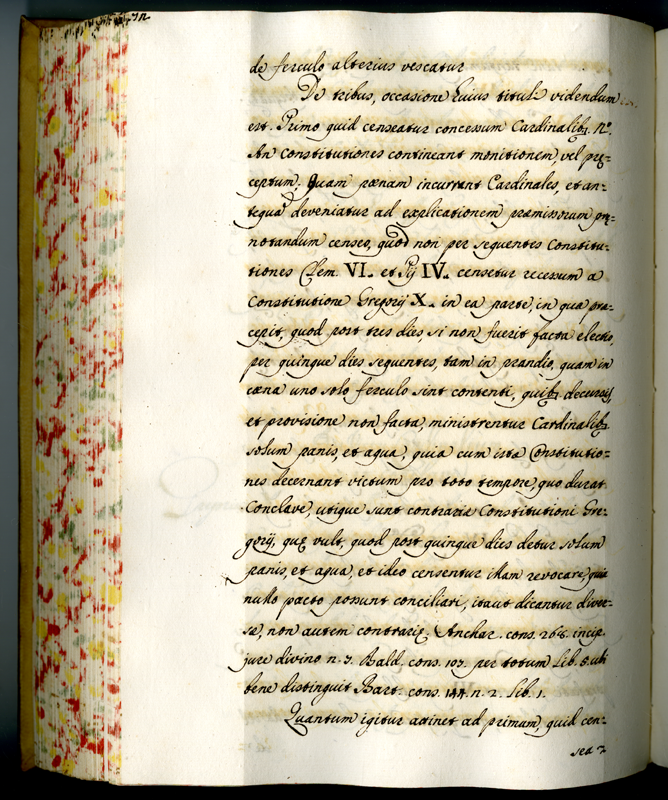 de ferculo alterius vescatur
De tribus, occasione huius tituli videndum
est. Primo quid censeatur concessum Cardinalib9. N.º
An Constitutiones contineant monitionem, vel prę=
ceptum; Quam pœnam incurrant Cardinales, et an=
tequã deveniatur ad explicationem præmissorum prę=
notandum censeo, quod non per sequentes Constitu=
tiones Clem. VI. et Pij IV. censetur recessum a
Constitutione Gregorij X. in ea parte, in qua præ=
cepit, quod post tres dies, si non fuerit facta electio,
per quinque dies sequentes, tam in prandio, quam in
cæna uno solo ferculo sint contenti, quib9 decursis,
et provisione non facta, ministrentur Cardinalib9
solum panis, et aqua, quia cum istæ Constitutio=
nes decernant victum pro toto tempore, quo durat
Conclave, utique sunt contraria Constitutioni Gre=
gorij, quę vult, quod post quinque dies detur solum
panis, et aqua, et ideo censentur illam revocare, quia
nullo pacto possunt conciliari, itaut dicantur diver=
sæ, non autem contrarię. Anchar. cons. 268. incip.
jure divino n. 3. Bald. cons. 107. per totum lib. 5. ubi
bene distinguit Bart. cons. 144. n. 2. lib. 1.
Quantum igitur attinet ad primam, quid cen=
sea